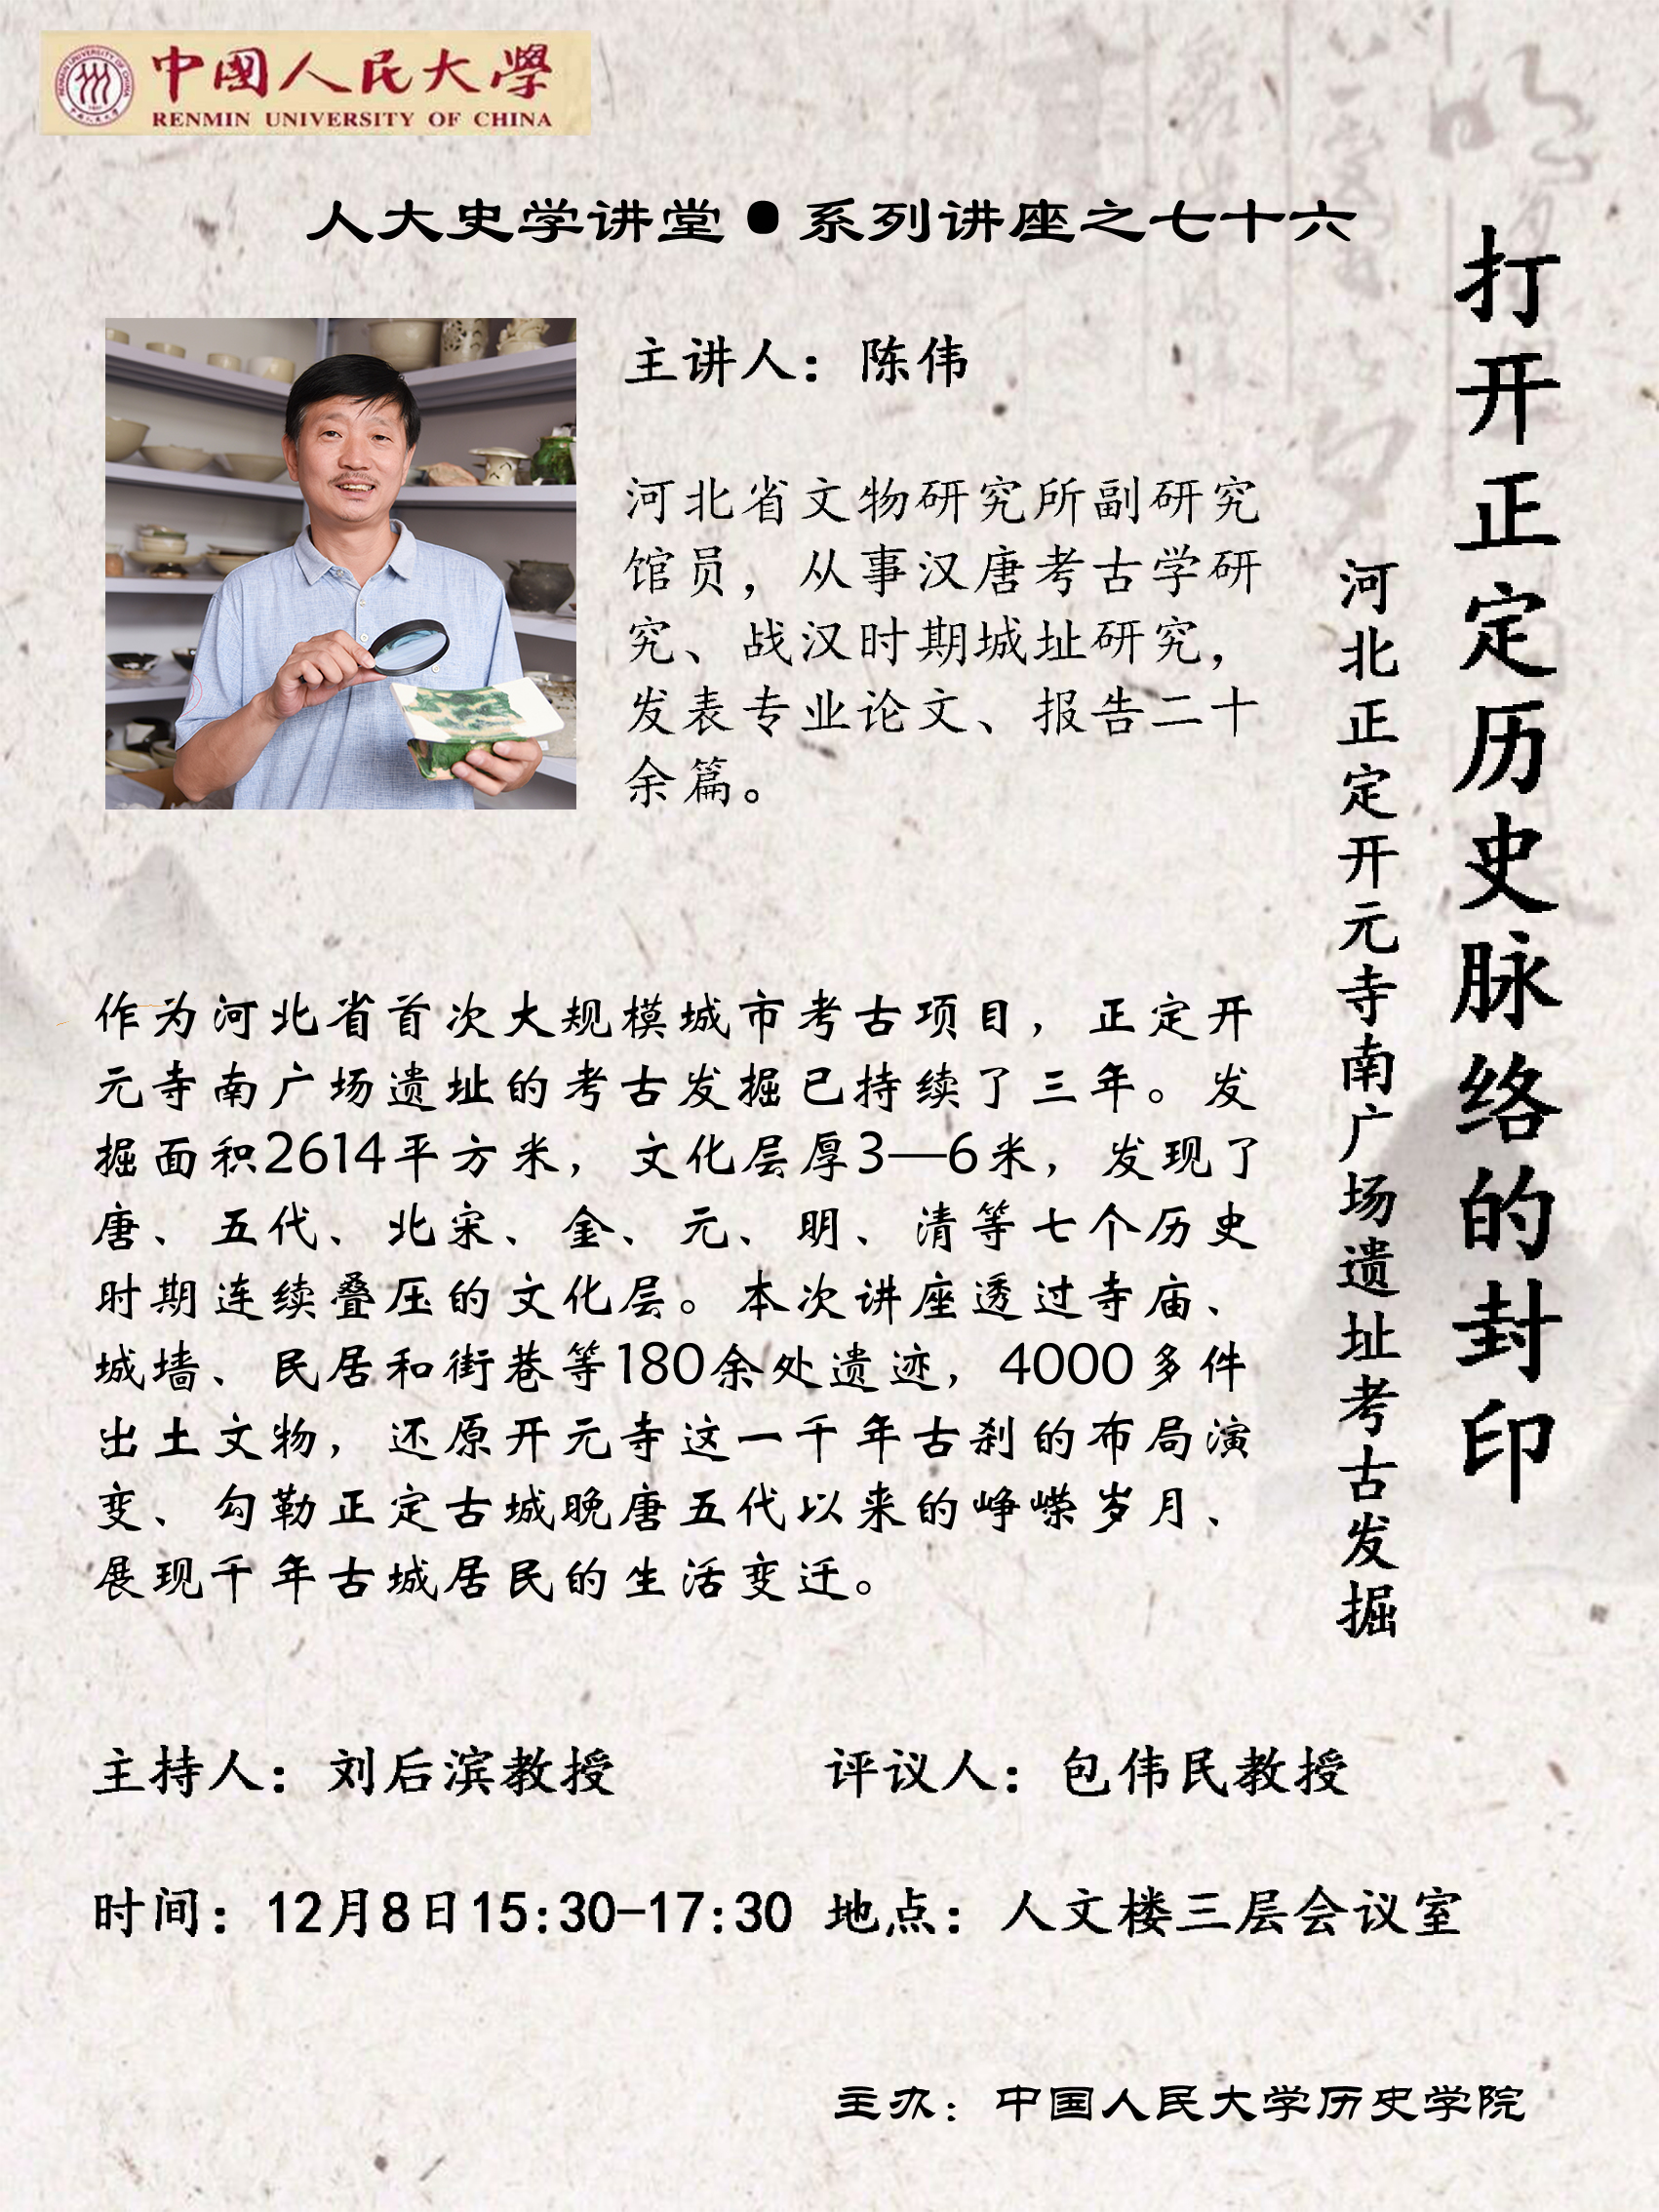 中國人民大學
RENMIN UNIVERSITY OF CHINA
人大史学讲堂●系列讲座之七十六
打开正定历史脉络的封印
河北正定开元寺南广场遗址考古发掘
主讲人：陈伟
河北省文物研究所副研究
馆员，从事汉唐考古学研
究、战汉时期城址研究，
发表专业论文、报告二十
余篇。
作为河北省首次大规模城市考古项目，正定开
元寺南广场遗址的考古发掘已持续了三年。发
掘面积2614平方米，文化层厚3—6米，发现了
唐、五代、北宋、金、元、明、清等七个历史
时期连续叠压的文化层。本次讲座透过寺庙、
城墙、民居和街巷等180余处遗迹，4000多件
出土文物，还原开元寺这一千年古刹的布局演
变、勾勒正定古城晚唐五代以来的峥嵘岁月、
展现千年古城居民的生活变迁。
主持人：刘后滨教授 评议人：包伟民教授
时间：12月8日15:30-17:30 地点：人文楼三层会议室
主办：中国人民大学历史学院